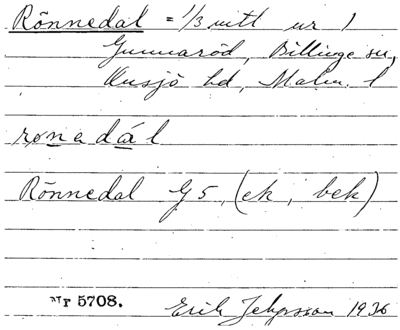 Rönnedal = 1/3 mtl nr 1
Gunnaröd, Billinge sn,
Onsjö hd, Malm. l
rønedál
Rönnedal G5, (ek, bek)
5708. Erik 1936